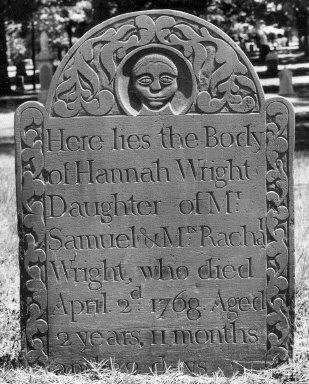 Here lies the Body
of Hannah Wright
Daughter of Mr.
Samuel & Mrs. Rachal
Wright, who died
April 2d. 1768 Aged
2 years, 11 months
days